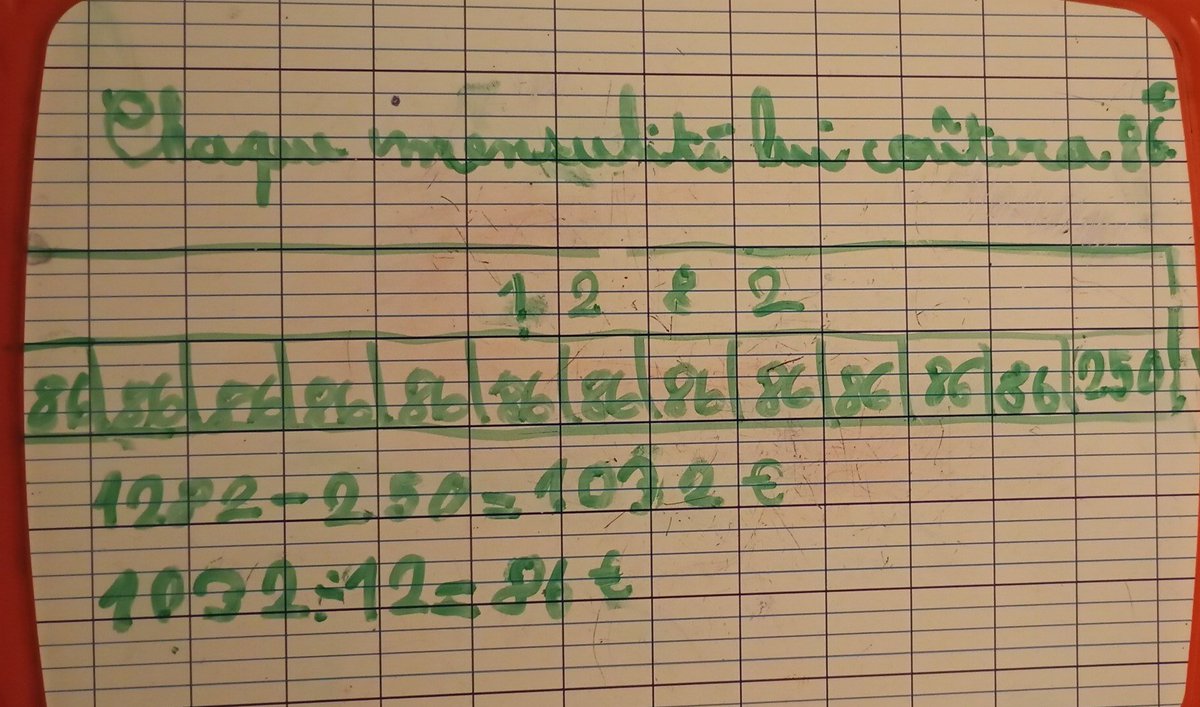 Chaque mensulité lui coûtera 86 €
1 2 8 2
86 86 86 86 86 86 86 86 86 86 86 86 250
1282 - 250 = 1032 €
1032 ÷ 12 = 86 €